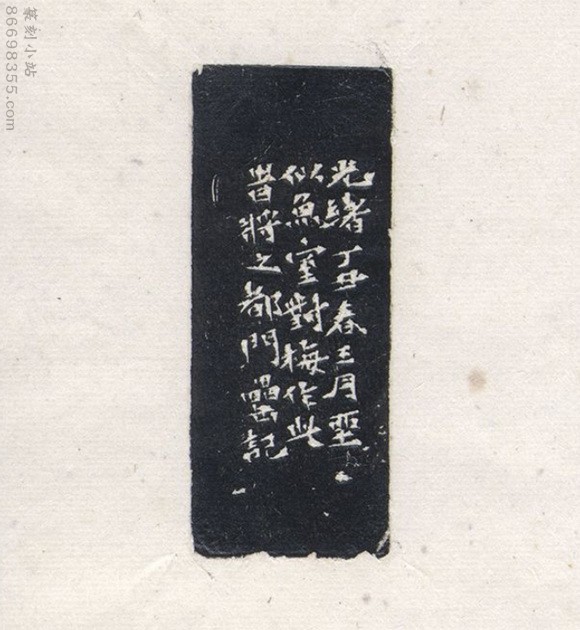 光緒丁丑春王月朢
似魚室對梅作此
旹將之都門罍記
篆刻小站
86698355.com